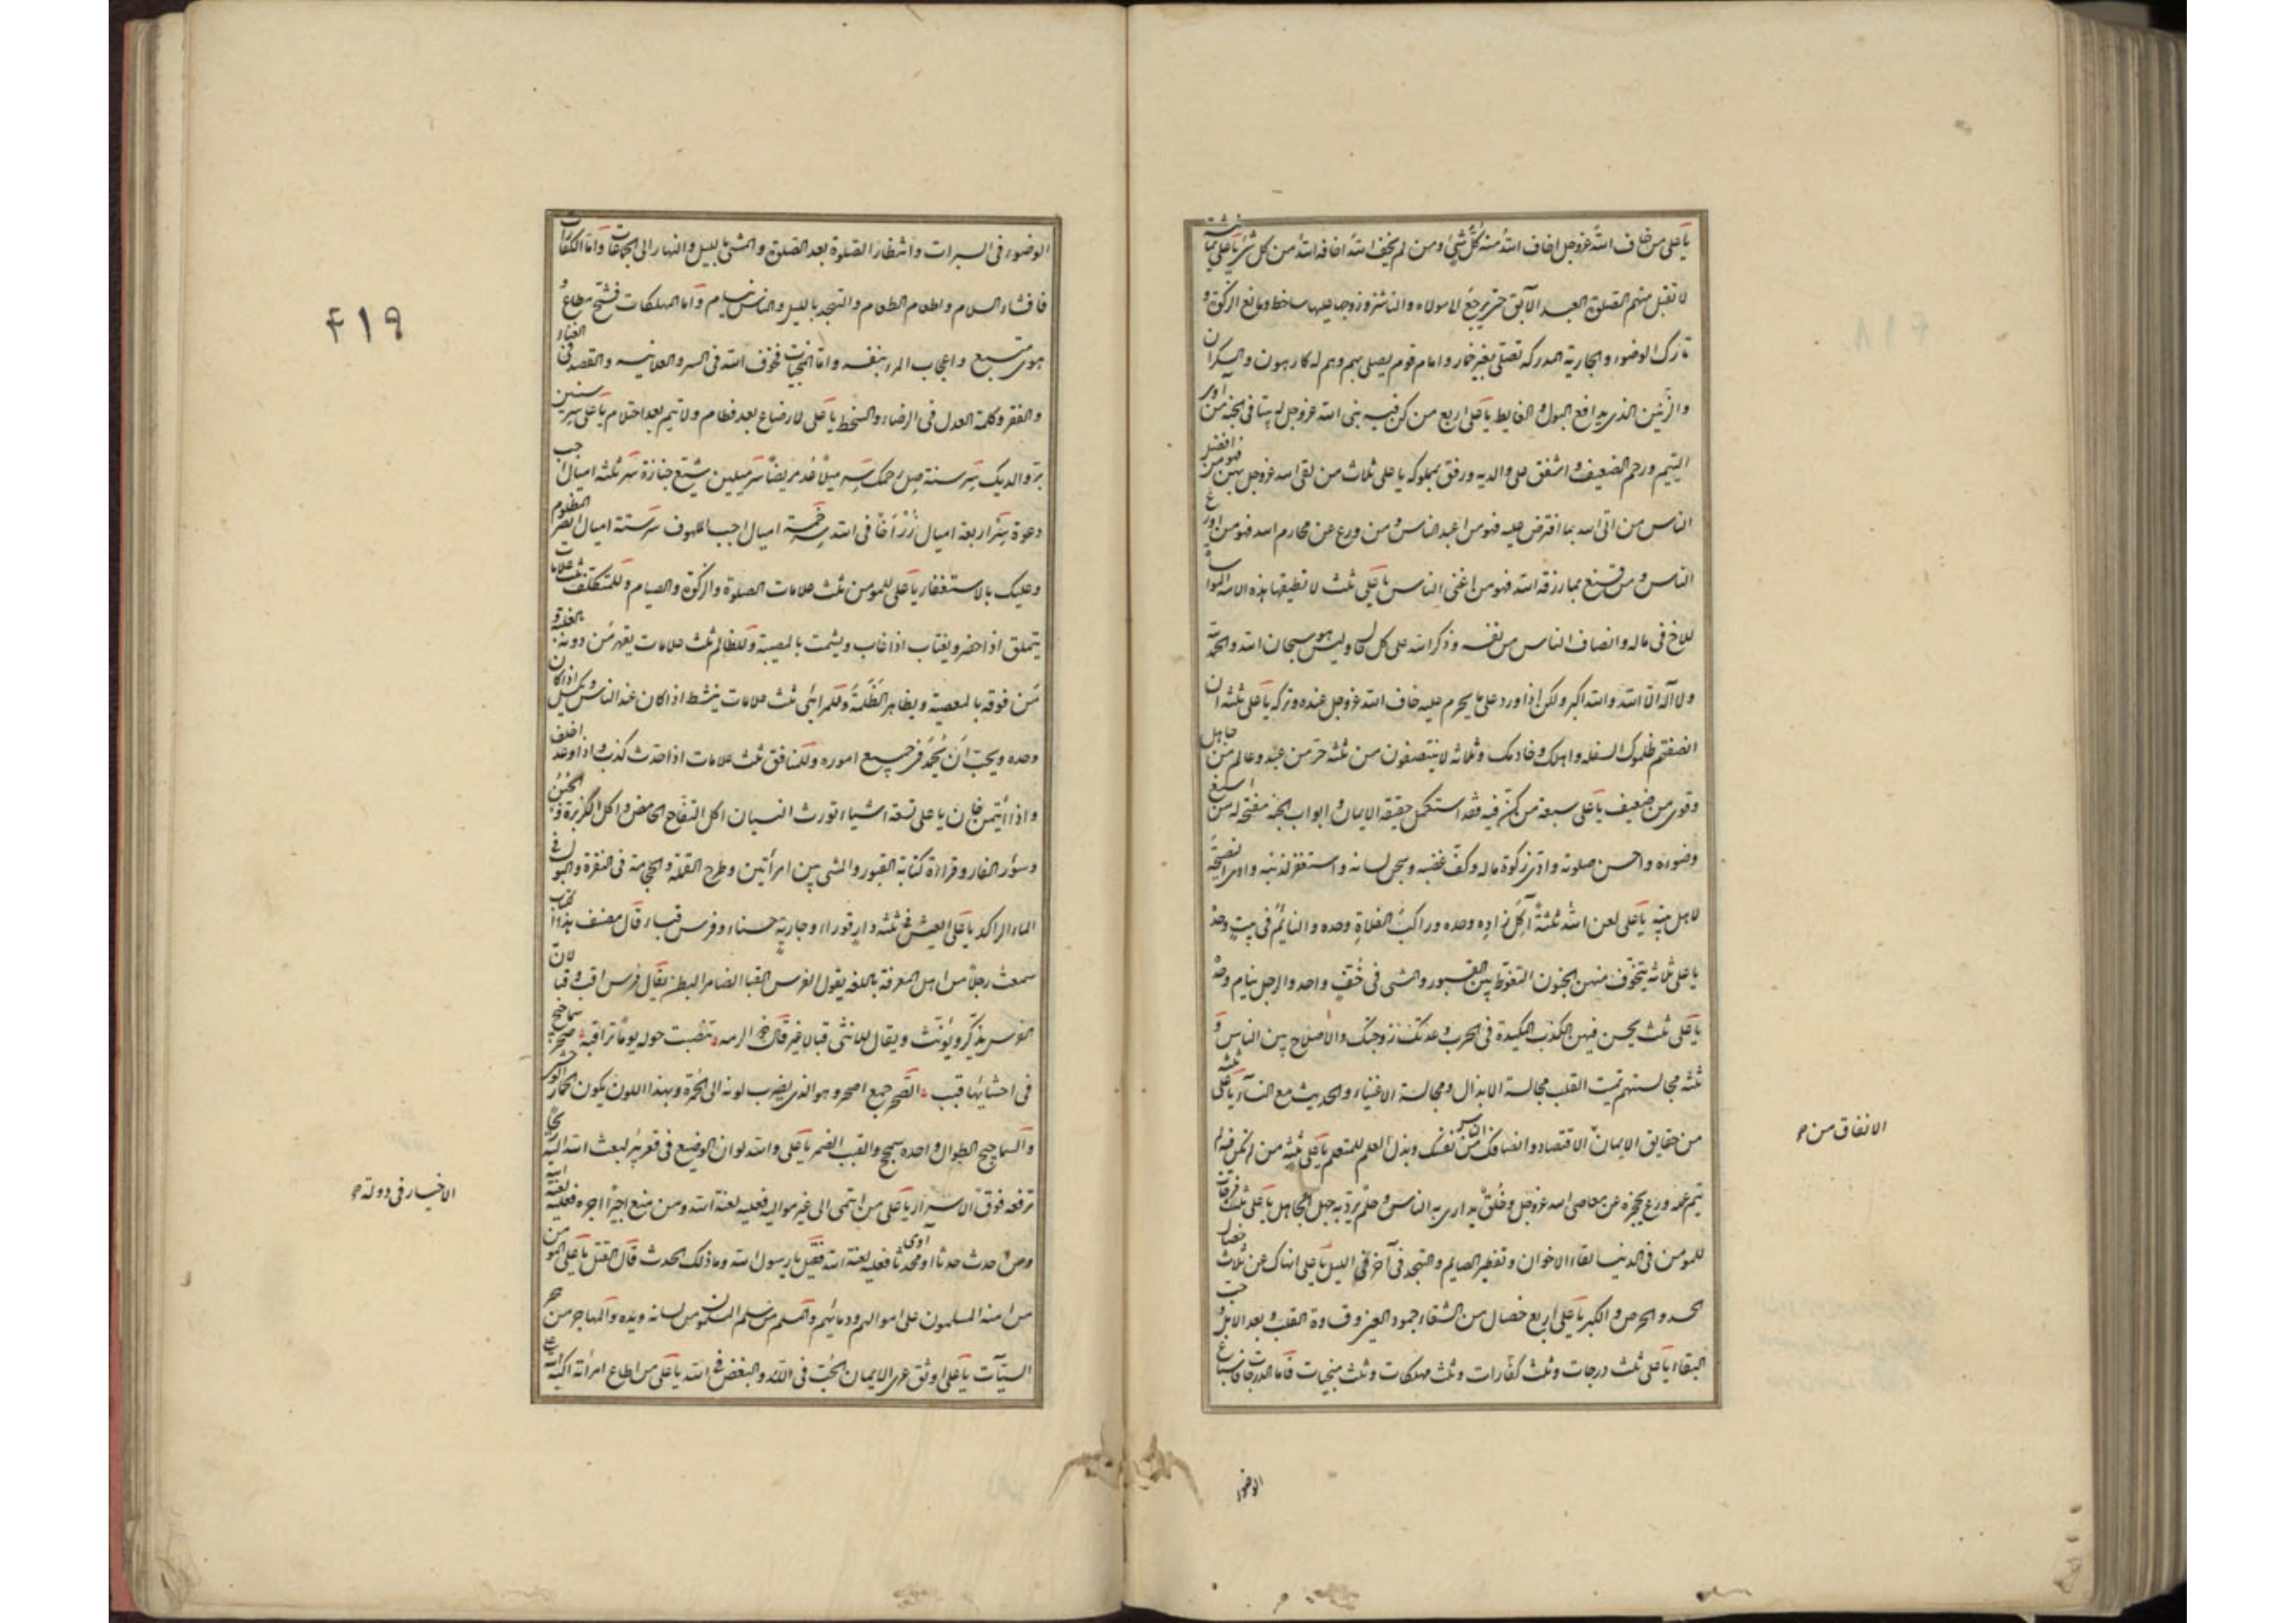 يا على من خاف الله عز وجل اخاف الله منه كل شئ ومن لم يخف الله اخافه الله من كل شئ يا على ثمانية
لا تقبل منهم الصلوة العبد الآبق حتى يرجع الى مولاه والناشز وزوجها عليها ساخط ومانع الزكوة و
تارك الوضوء والجارية المدركة تصلى بغير خمار وامام قوم يصلى بهم وهم له كارهون والسكران
والزنين الذى يدافع البول والغايط يا على اربع من كن فيه بنى الله عز وجل له بيتا فى الجنة من اوى
اليتيم ورحم الضعيف واشفق على والديه ورفق بمملوكه يا على ثلاث من لقى الله عز وجل بهن فهو من افضل
الناس من اتى الله بما افترض عليه فهو من اعبد الناس ومن ورع عن محارم الله فهو من اورع
الناس ومن قنع بما رزقه الله فهو من اغنى الناس يا على ثلث لا تطيقها هذه الامة المواساة
للاخ فى ماله وانصاف الناس من نفسه وذكر الله على كل حال وليس هو سبحان الله والحمد لله
ولا آله الا الله والله اكبر ولكن اذا ورد على ما يحرم عليه خاف الله عز وجل عنده وتركه يا على ثلثة ان
انصفتهم ظلموك السفلة واهلك وخادمك وثلاثة لا ينتصفون من ثلثة حر من عبد وعالم من جاهل
وقوى من ضعيف يا على سبعة من كن فيه فقد استكمل حقيقة الايمان وابواب الجنة مفتحة له من اسبغ
وضوءه واحسن صلوته وادى زكوة ماله وكف غضبه وسجن لسانه واستغفر لذنبه وادى النصيحة
لاهل بيته يا على لعن الله ثلثة آكل زاده وحده وراكب الفلاة وحده والنايم فى بيت وحده
يا على ثلاثة يتخوف منهن الجنون التغوط بين القبور والمشى فى خف واحد والرجل ينام وحده
يا على ثلث يحسن فيهن الكذب المكيدة فى الحرب وعدتك زوجتك والاصلاح بين الناس و
ثلثة مجالستهم تميت القلب مجالسة الانذال ومجالسة الاغنياء والحديث مع النساء يا على ثلثة
من حقايق الايمان الاقتصاد وانصافك الناس من نفسك وبذل العلم للمتعلم يا على ثلثة من لم تكن فيه لم
يتم عمله ورع يحجزه عن معاصى الله عز وجل وخلق يدارى به الناس وحلم يرد به جهل الجاهل يا على ثلث فرحات
للمومن فى الدنيا لقاء الاخوان وتفطير الصايم والتهجد فى آخر الليل يا على انهاك عن ثلاث خصال
الحسد والحرص والكبر يا على اربع خصال من الشقاء جمود العين وقساوة القلب وبعد الامل وحب
البقاء يا على ثلث درجات وثلث كفارات وثلث مهلكات وثلث منجيات فاما الدرجات فاسباغ
الانفاق من
الوضوء
الوضوء فى السبرات وانتظار الصلوة بعد الصلوة والمشى بالليل والنهار الى الجماعات واما الكفارات
فافشاء السلام واطعام الطعام والتهجد بالليل والناس نيام واما المهلكات فشح مطاع و
هوى متبع واعجاب المرء بنفسه واما المنجيات فخوف الله فى السر والعلانية والقصد فى الغناء
والفقر وكلمة العدل فى الرضاء والسخط يا على لا رضاع بعد فطام ولا يتم بعد احتلام يا على سر سنتين
بر والديك سر سنة صل رحمك سر ميلا عد مريضا سر ميلين شيع جنازة سر ثلثة اميال اجب
دعوة سر اربعة اميال زر اخا فى الله سر خمسة اميال اجب الملهوف سر ستة اميال انصر المظلوم
وعليك بالاستغفار يا على للمومن ثلث علامات الصلوة والزكوة والصيام وللمتكلف ثلث علامات
يتملق اذا حضر ويغتاب اذا غاب ويشمت بالمصيبة وللظالم ثلث علامات يقهر من دونه بالغلبة و
من فوقه بالمعصية ويظاهر الظلمة وللمرائى ثلث علامات ينشط اذا كان عند الناس ويكسل اذا كان
وحده ويحب ان يحمد فى جميع اموره وللمنافق ثلث علامات اذا حدث كذب واذا وعد اخلف
واذا ائتمن خان يا على تسعة اشياء تورث النسيان اكل التفاح الحامض واكل الكزبرة والجبن
وسؤر الفار وقراءة كتابة القبور والمشى بين امرأتين وطرح القملة والحجامة فى النقرة والبول فى
الماء الراكد يا على العيش فى ثلثة دار قوراء وجارية حسناء وفرس قباء قال مصنف هذا الكتاب
سمعت رجلا من اهل المعرفة باللغة يقول الفرس القباء الضامر البطن يقال فرس اقب وقباء لان
الفرس يذكر ويؤنث ويقال للانثى قباء لا غير قال ذو الرمة تنصبت حوله يوما تراقبه صحر سماحيج
فى احشايها قبب الصحر جمع اصحر وهو الذى يضرب لونه الى الحمرة وبهذا اللون يكون الحمار الوحشى
والسماحيج الطوال واحده سمحج والقبب الضمر يا على والله لو ان الوضيع فى قعر بئر لبعث الله اليه ريحا
ترفعه فوق الاسرار يا على من انتمى الى غير مواليه فعليه لعنة الله ومن منع اجيرا اجره فعليه لعنة الله
ومن احدث حدثا او آوى محدثا فعليه لعنة الله فقيل يا رسول الله وما ذلك الحدث قال القتل يا على المومن من
من امنه المسلمون على اموالهم ودمائهم والمسلم من سلم المسلمون من لسانه ويده والمهاجر من هجر
السيآت يا على اوثق عرى الايمان الحب فى الله والبغض فى الله يا على من اطاع امرأته اكبه الله على
الاخيار فى دولة
۴۱۹